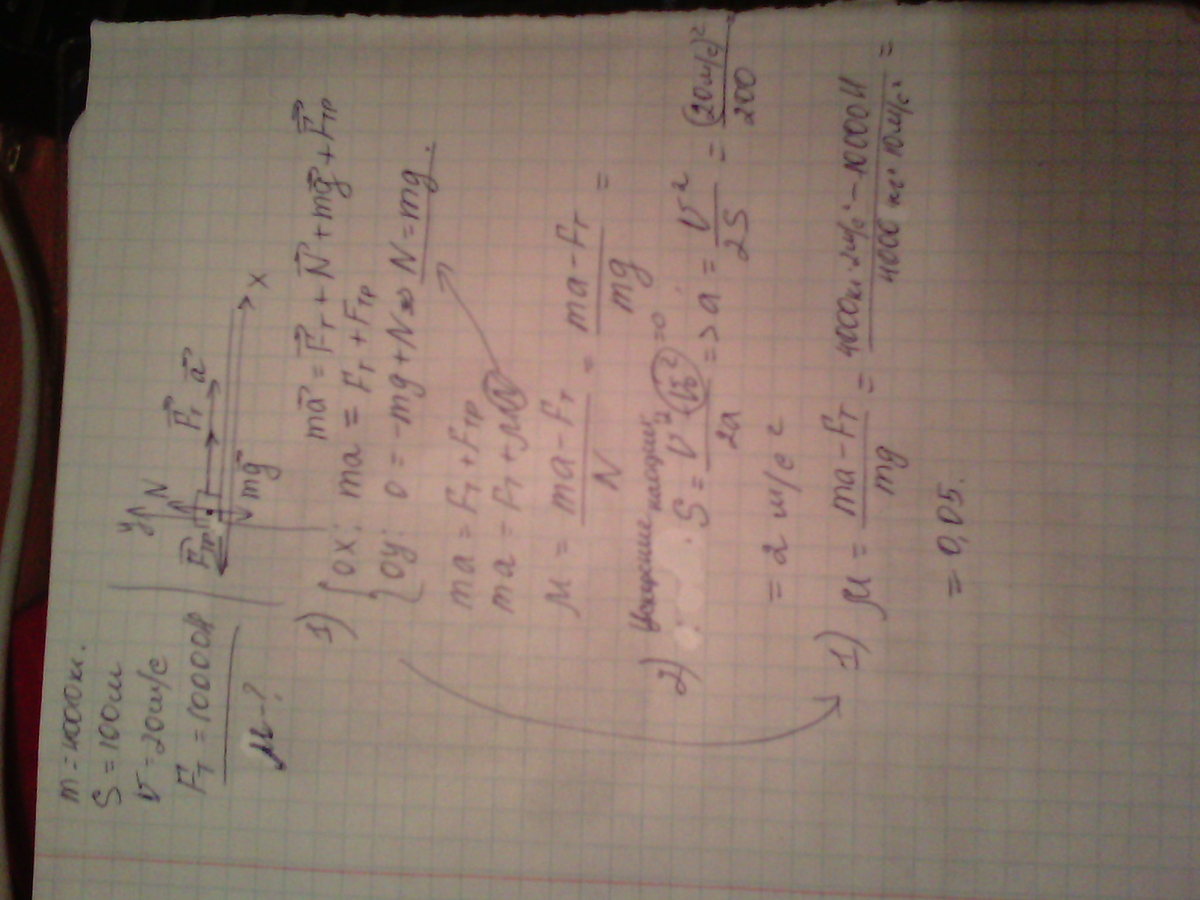 m = 4000 кг.
S = 100 м
v = 20 м/с
Fт = 10000 Н
μ - ?
y N
Fтр Fт a
mg x
1) ma = Fт + N + mg + Fтр
ox: ma = Fт + Fтр
oy: 0 = -mg + N => N = mg.
ma = Fт + Fтр
ma = Fт + μN
μ = (ma - Fт)/N = (ma - Fт)/mg =
2)
S = (v² - v₀²)/2a = 0 => a = v²/2S = (20 м/с)²/200 =
= 2 м/с²
1) μ = (ma - Fт)/mg = (4000 кг · 2 м/с² - 10000 Н)/(4000 кг · 10 м/с²) =
= 0,05.